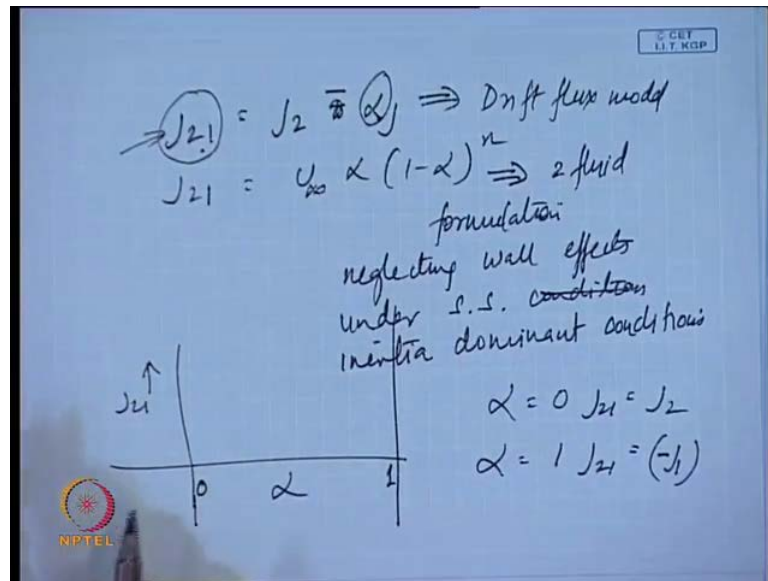 © CET
I.I.T. KGP
J21 = J2 - αj ⇒ Drift flux model
J21 = U∞ α (1-α)^n ⇒ 2 fluid
formulation
neglecting wall effects
under S.S.
inertia dominant conditions
J21 ↑
α = 0 J21 = J2
α = 1 J21 = (-J1)
0 α 1
NPTEL